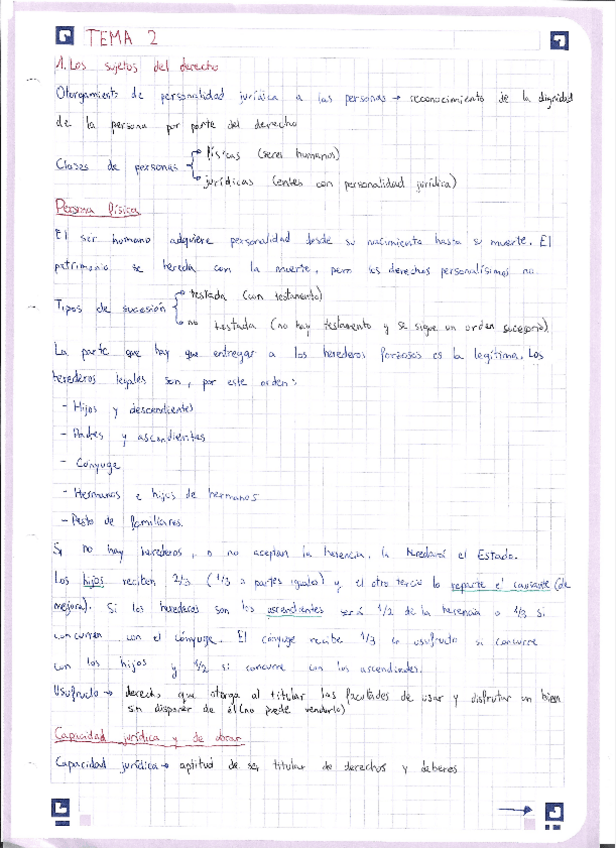 TEMA 2
1. Los sujetos del derecho
Otorgamiento de personalidad jurídica a las personas → reconocimiento de la dignidad
de la persona por parte del derecho
Clases de personas
físicas (seres humanos)
jurídicas (entes con personalidad jurídica)
Persona física
El ser humano adquiere personalidad desde su nacimiento hasta su muerte. El
patrimonio se hereda con la muerte, pero los derechos personalísimos no.
Tipos de sucesión
testada (con testamento)
no testada (no hay testamento y se sigue un orden sucesorio)
La parte que hay que entregar a los herederos forzosos es la legítima. Los
herederos legales son, por este orden:
- Hijos y descendientes
- Padres y ascendientes
- Cónyuge
- Hermanos e hijos de hermanos
- Resto de familiares.
Si no hay herederos, o no aceptan la herencia, la heredará el Estado.
Los hijos reciben 2/3 (1/3 a partes iguales) y el otro tercio lo reparte el causante (de
mejora). Si los herederos son los ascendientes será 1/2 de la herencia o 1/3 si
concurren con el cónyuge. El cónyuge recibe 1/3 en usufructo si concurre
con los hijos y 1/2 si concurre con los ascendientes.
Usufructo → derecho que otorga al titular las facultades de usar y disfrutar un bien
sin disponer de él (no puede venderlo)
Capacidad jurídica y de obrar
Capacidad jurídica → aptitud de ser titular de derechos y deberes